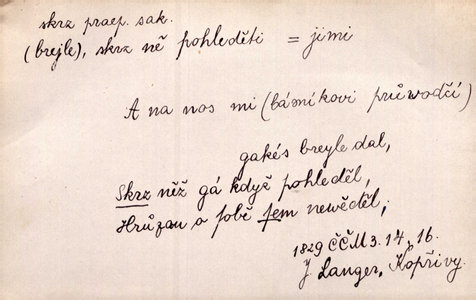 skrz praep. sak.
(brejle), skrz ně pohleděti = jimi
A na nos mi (básníkovi průwodčí)
gakés breyle dal,
Skrz něž gá když pohleděl,
Hrůzau o sobě sem newěděl;
1829 ČČM 3. 14, 16.
J. Langer, Kopřivy.